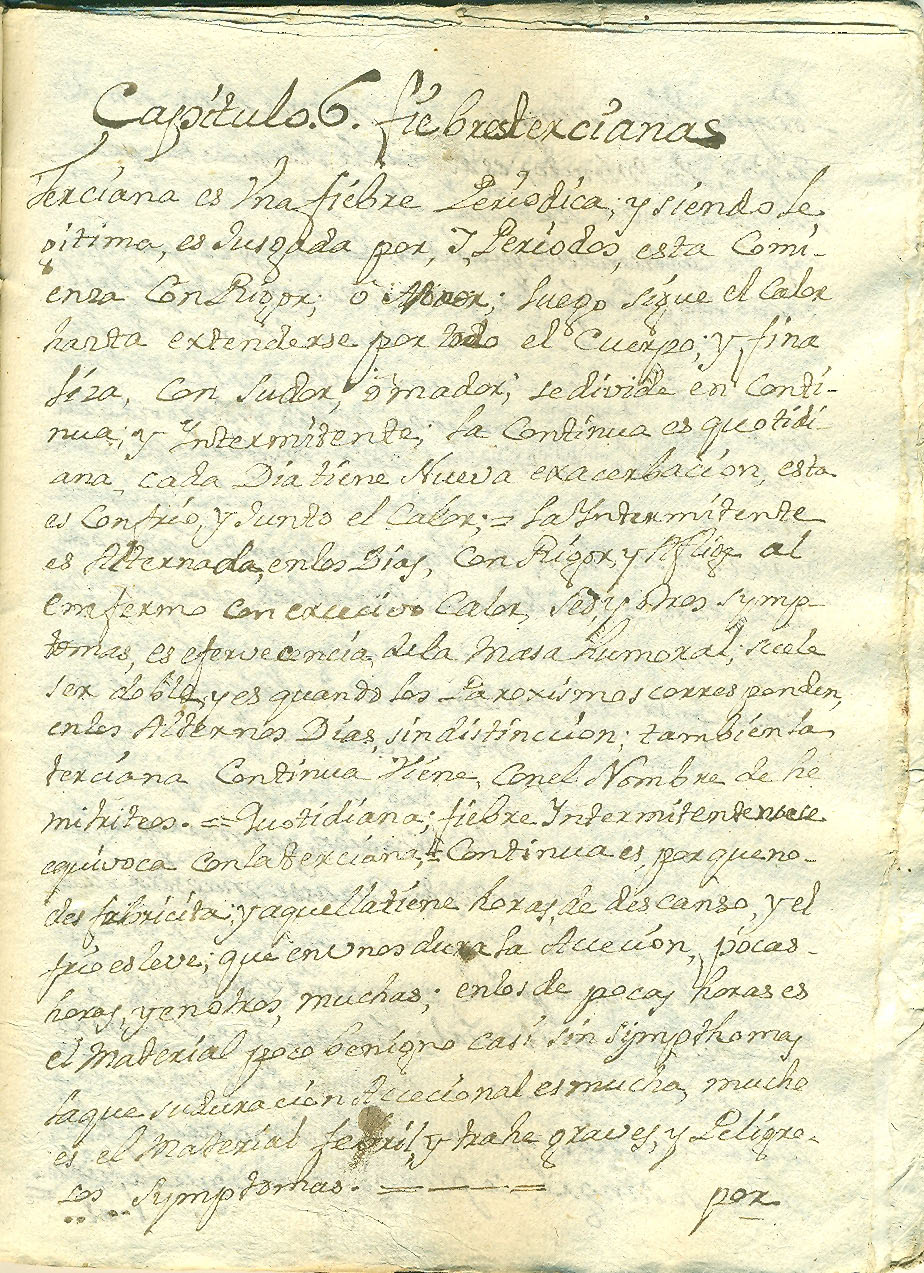 Capitulo.6. fiebres tercianas
Terciana es Vna fiebre Periodica, y siendo le
gitima, es Jusgada por, 7, Periodos, esta Comi-
enza Con Rigor; ó; luego sigue el Calor
hasta extenderse por todo el Cuerpo; y, fina
liza, con sudor, ó mador; se divide en Conti-
nua; y Yntermitente; la Continua es quotidi
ana, cada Dia tiene Nueva exacerbacion, esta
es Con frio, y Junto el Calor; = la Yntermitente
es Alternada, en los Dias, Con Rigor, y Aflige al
emfermo con excecivo Calor, sed, y otros symp-
tomas, es efervecencia, de la Masa humoral; suele
ser doble, y es quando los Paroxismos corresponden,
en los Alternos Dias, sin distincion; tambien la
terciana Continua Viene, con el Nombre de he
mitriteos. = Quotidiana; fiebre Intermitente no se
equivoca con la terciana, = Continua es, porque no-
des fabricita; y aquella tiene horas, de descanso, y el
frio es leve; que en unos dura la Accecion, pocas-
horas, y en otros, muchas; en los de pocas horas es
el Material poco benigno casi sin symptomas
la que su duracion Accecional es mucha, mucho
es el Material febril, y trahe graves, y Peligro-
sos symptomas. = — =
por